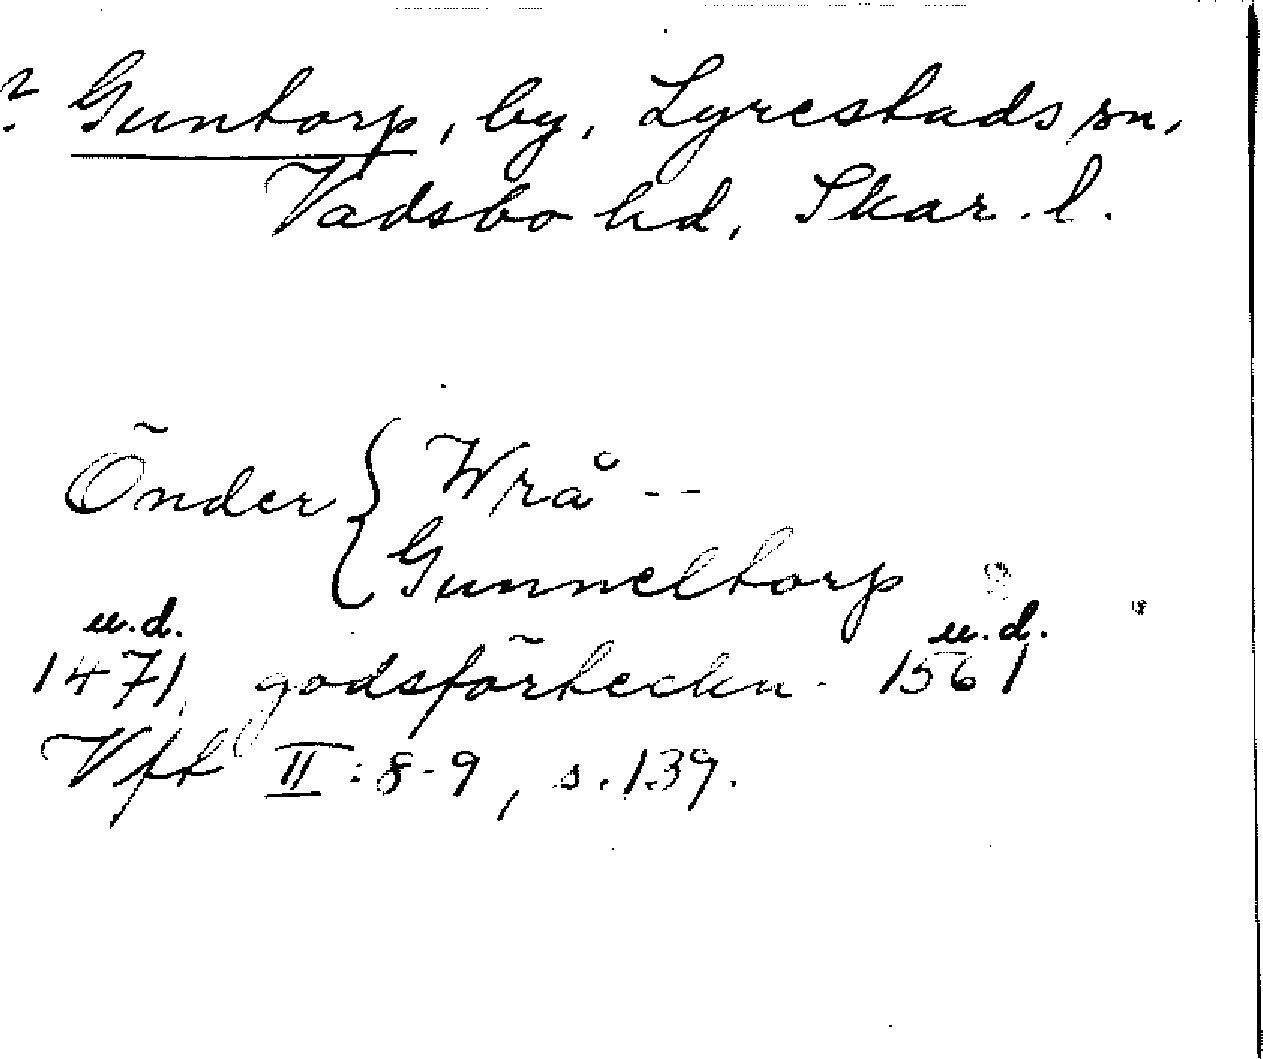 ? Guntorp, by, Lyrestads sn,
Vadsbo hd, Skar. l.
Önder { Wrå --
Gunneltorp
u.d. u.d.
1471, godsförteckn. 1561
Vft II: 8-9, s. 139.